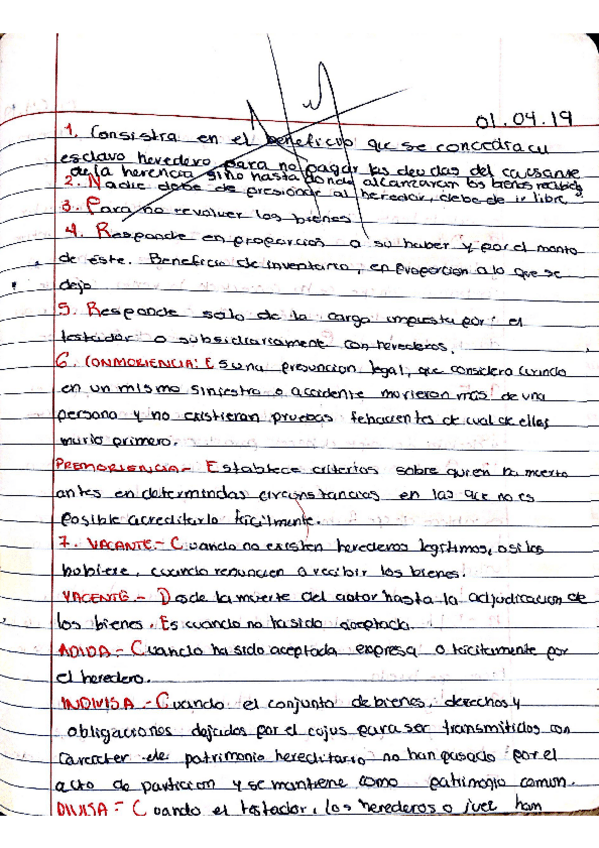 01.04.19
1. Consistia en el beneficio que se concedia cu
esclavo heredero para no pagar las deudas del causante
de la herencia sino hasta donde alcanzaran los bienes recibidos
2. Nadie debe de presionar al heredor, debe de ir libre
3. Para no revolver los bienes
4. Responde en proporcion a su haber y por el monto
de éste. Beneficio de inventario, en proporcion a lo que se
dejo
5. Responde solo de la carga impuesta por: el
testador o subsidiariamente con herederos.
6. CONMORIENCIA: Es una presuncion legal, que considera cuando
en un mismo siniestro o accidente murieron más de una
persona y no existieran pruebas fehacientes de cual de ellas
murio primero.
PREMORIENCIA.- Establece criterios sobre quien ha muerto
antes en determindas circunstancias en las que no es
posible acreditarlo facilmente.
7. VACANTE.- Cuando no existen herederos legitimos, o si los
hubiere, cuando renuncien a recibir los bienes.
YACENTE.- Desde la muerte del autor hasta la adjudicacion de
los bienes. Es cuando no ha sido aceptada.
ADIDA.- Cuando ha sido aceptada expresa o tacitamente por
el heredero.
INDIVISA.- Cuando el conjunto de bienes, derechos y
obligaciones dejados por el cujus para ser transmitidos con
caracter de patrimonio hereditario no han pasado por el
acto de particion y se mantiene como patrimonio comun.
DIVISA= Cuando el testador, los herederos o juez han